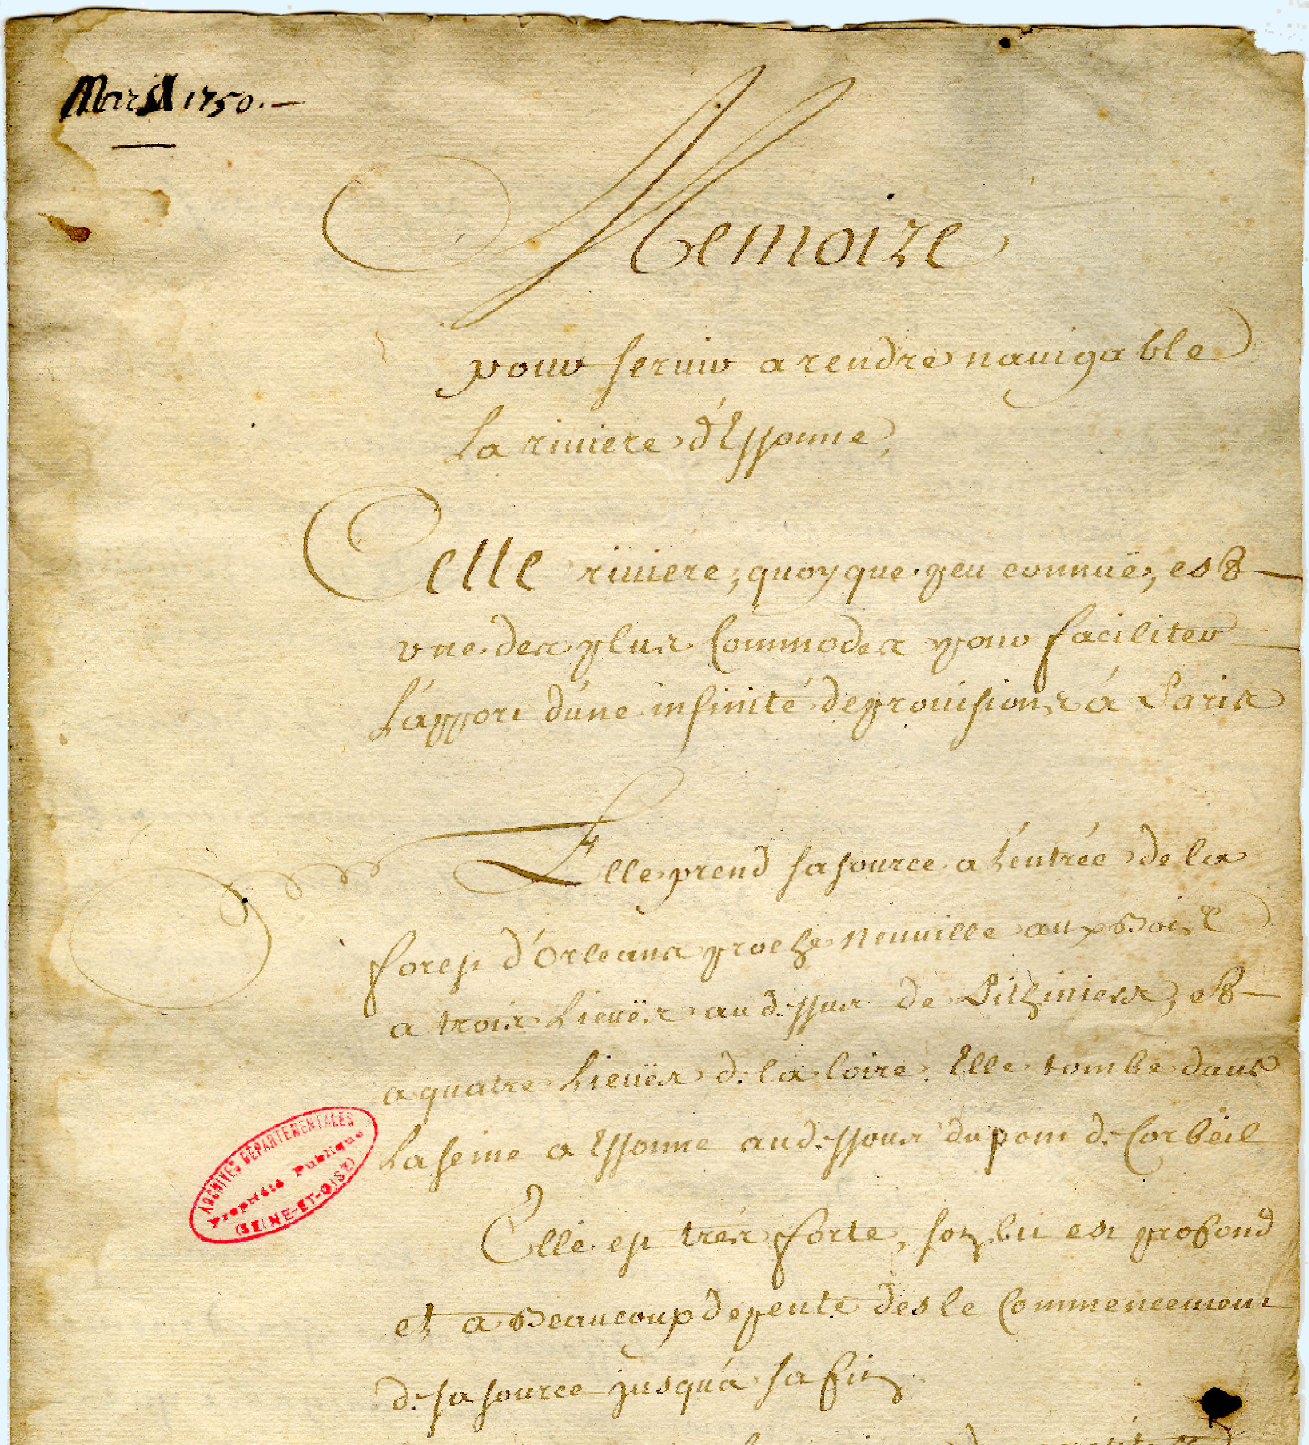 Mars 1750.
Memoire
pour seruir a rendre nauigable
La riuiere d'Essonne,
Cette riuiere, quoyque peu connuë, est
vne des plus Commodes pour faciliter
L'apport d'une infinité de prouisions á Paris
Elle prend sa source a L'entrée de la
forest d'Orleans proche Neuuille aux Bois
a trois Lieuës au dessus de Pithiuiers, et
a quatre Lieuës de la Loire. Elle tombe dans
La seine a Essonne audessous du pont de Corbeil
Elle est trés forte, son lit est profond
et a Beaucoup de pente des le Commencement
de sa source jusquá sa fin
ARCHIVES DÉPARTEMENTALES
Propriété Publique
(SEINE-ET-OISE)